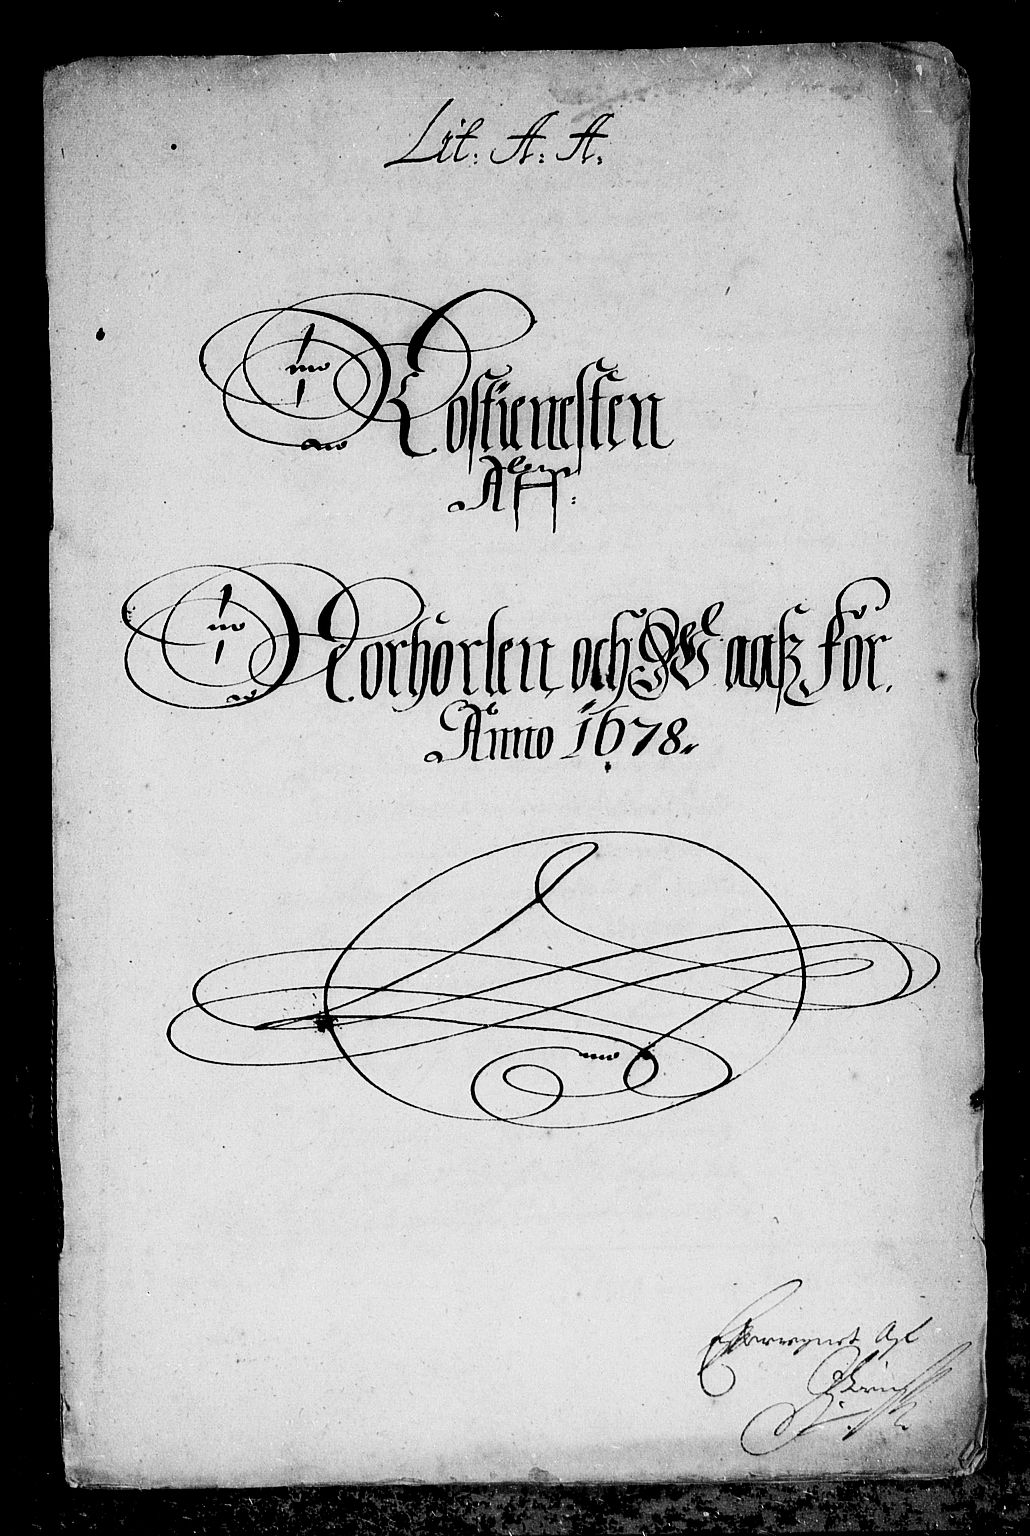 Lit: A: A:
Rostienesten
Aff:
Norhorlen och Waasz for
Anno 1678